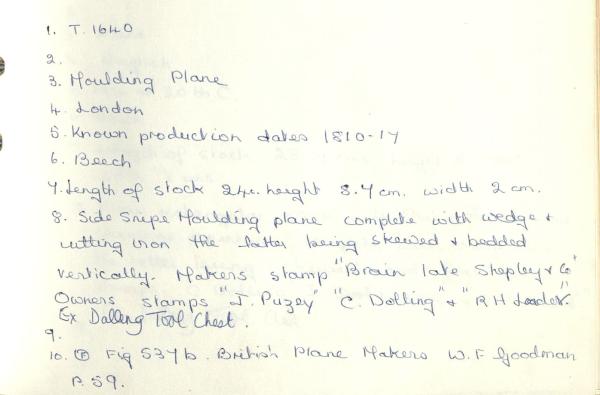 1. T. 1640
2.
3. Moulding Plane
4. London
5. Known production dates 1810-17
6. Beech
7. Length of stock 24c. height 8.7cm. width 2 cm.
8. Side Snipe Moulding plane complete with wedge &
cutting iron the latter being skewed & bedded
vertically. Makers stamp "Brain late Shepley & Co"
Owners stamps "J. Puzey" "C. Dolling" & "R H Loader".
Ex Dalling Tool Chest.
9.
10. (P) Fig 537b. British Plane Makers W. F Goodman
P. 59.